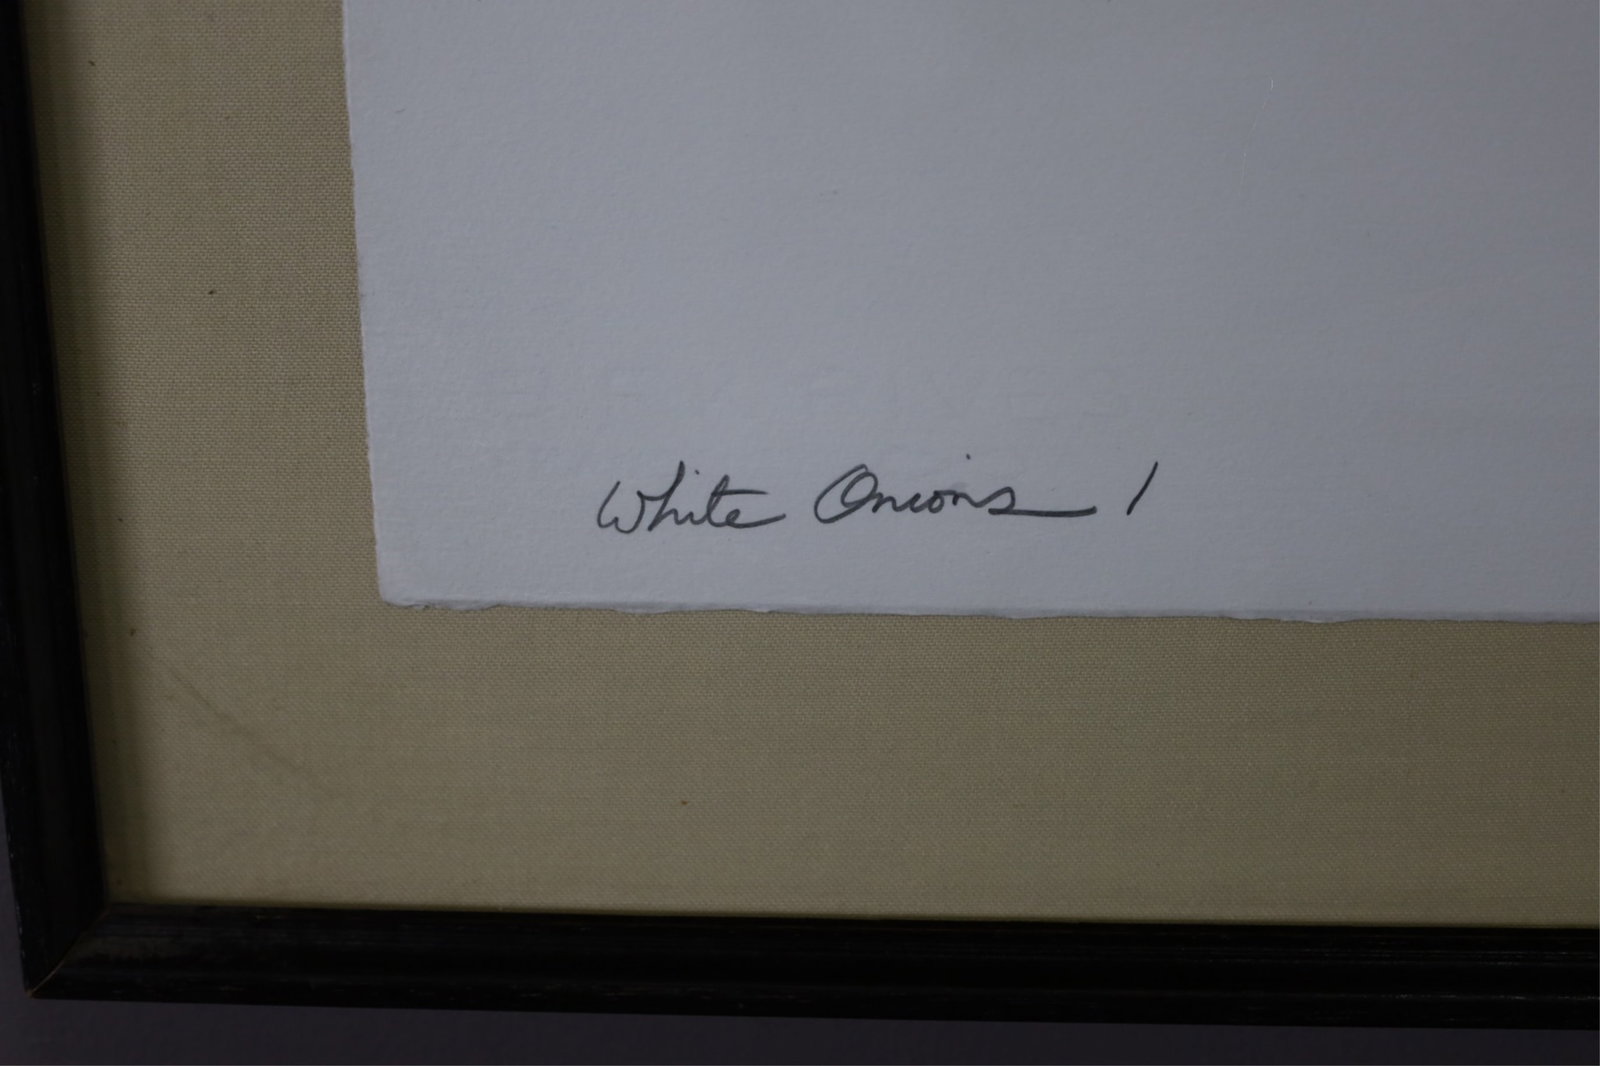 White Onions 1